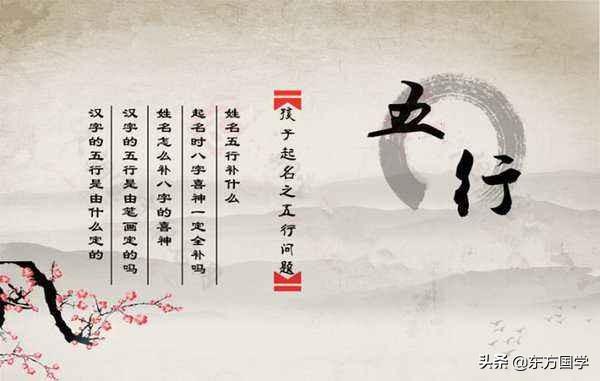 五行
孩子起名之五行问题
姓名五行补什么
起名时八字喜神一定全补吗
姓名怎么补八字的喜神
汉字的五行是由笔画定的吗
汉字的五行是由什么定的
头条 @东方国学